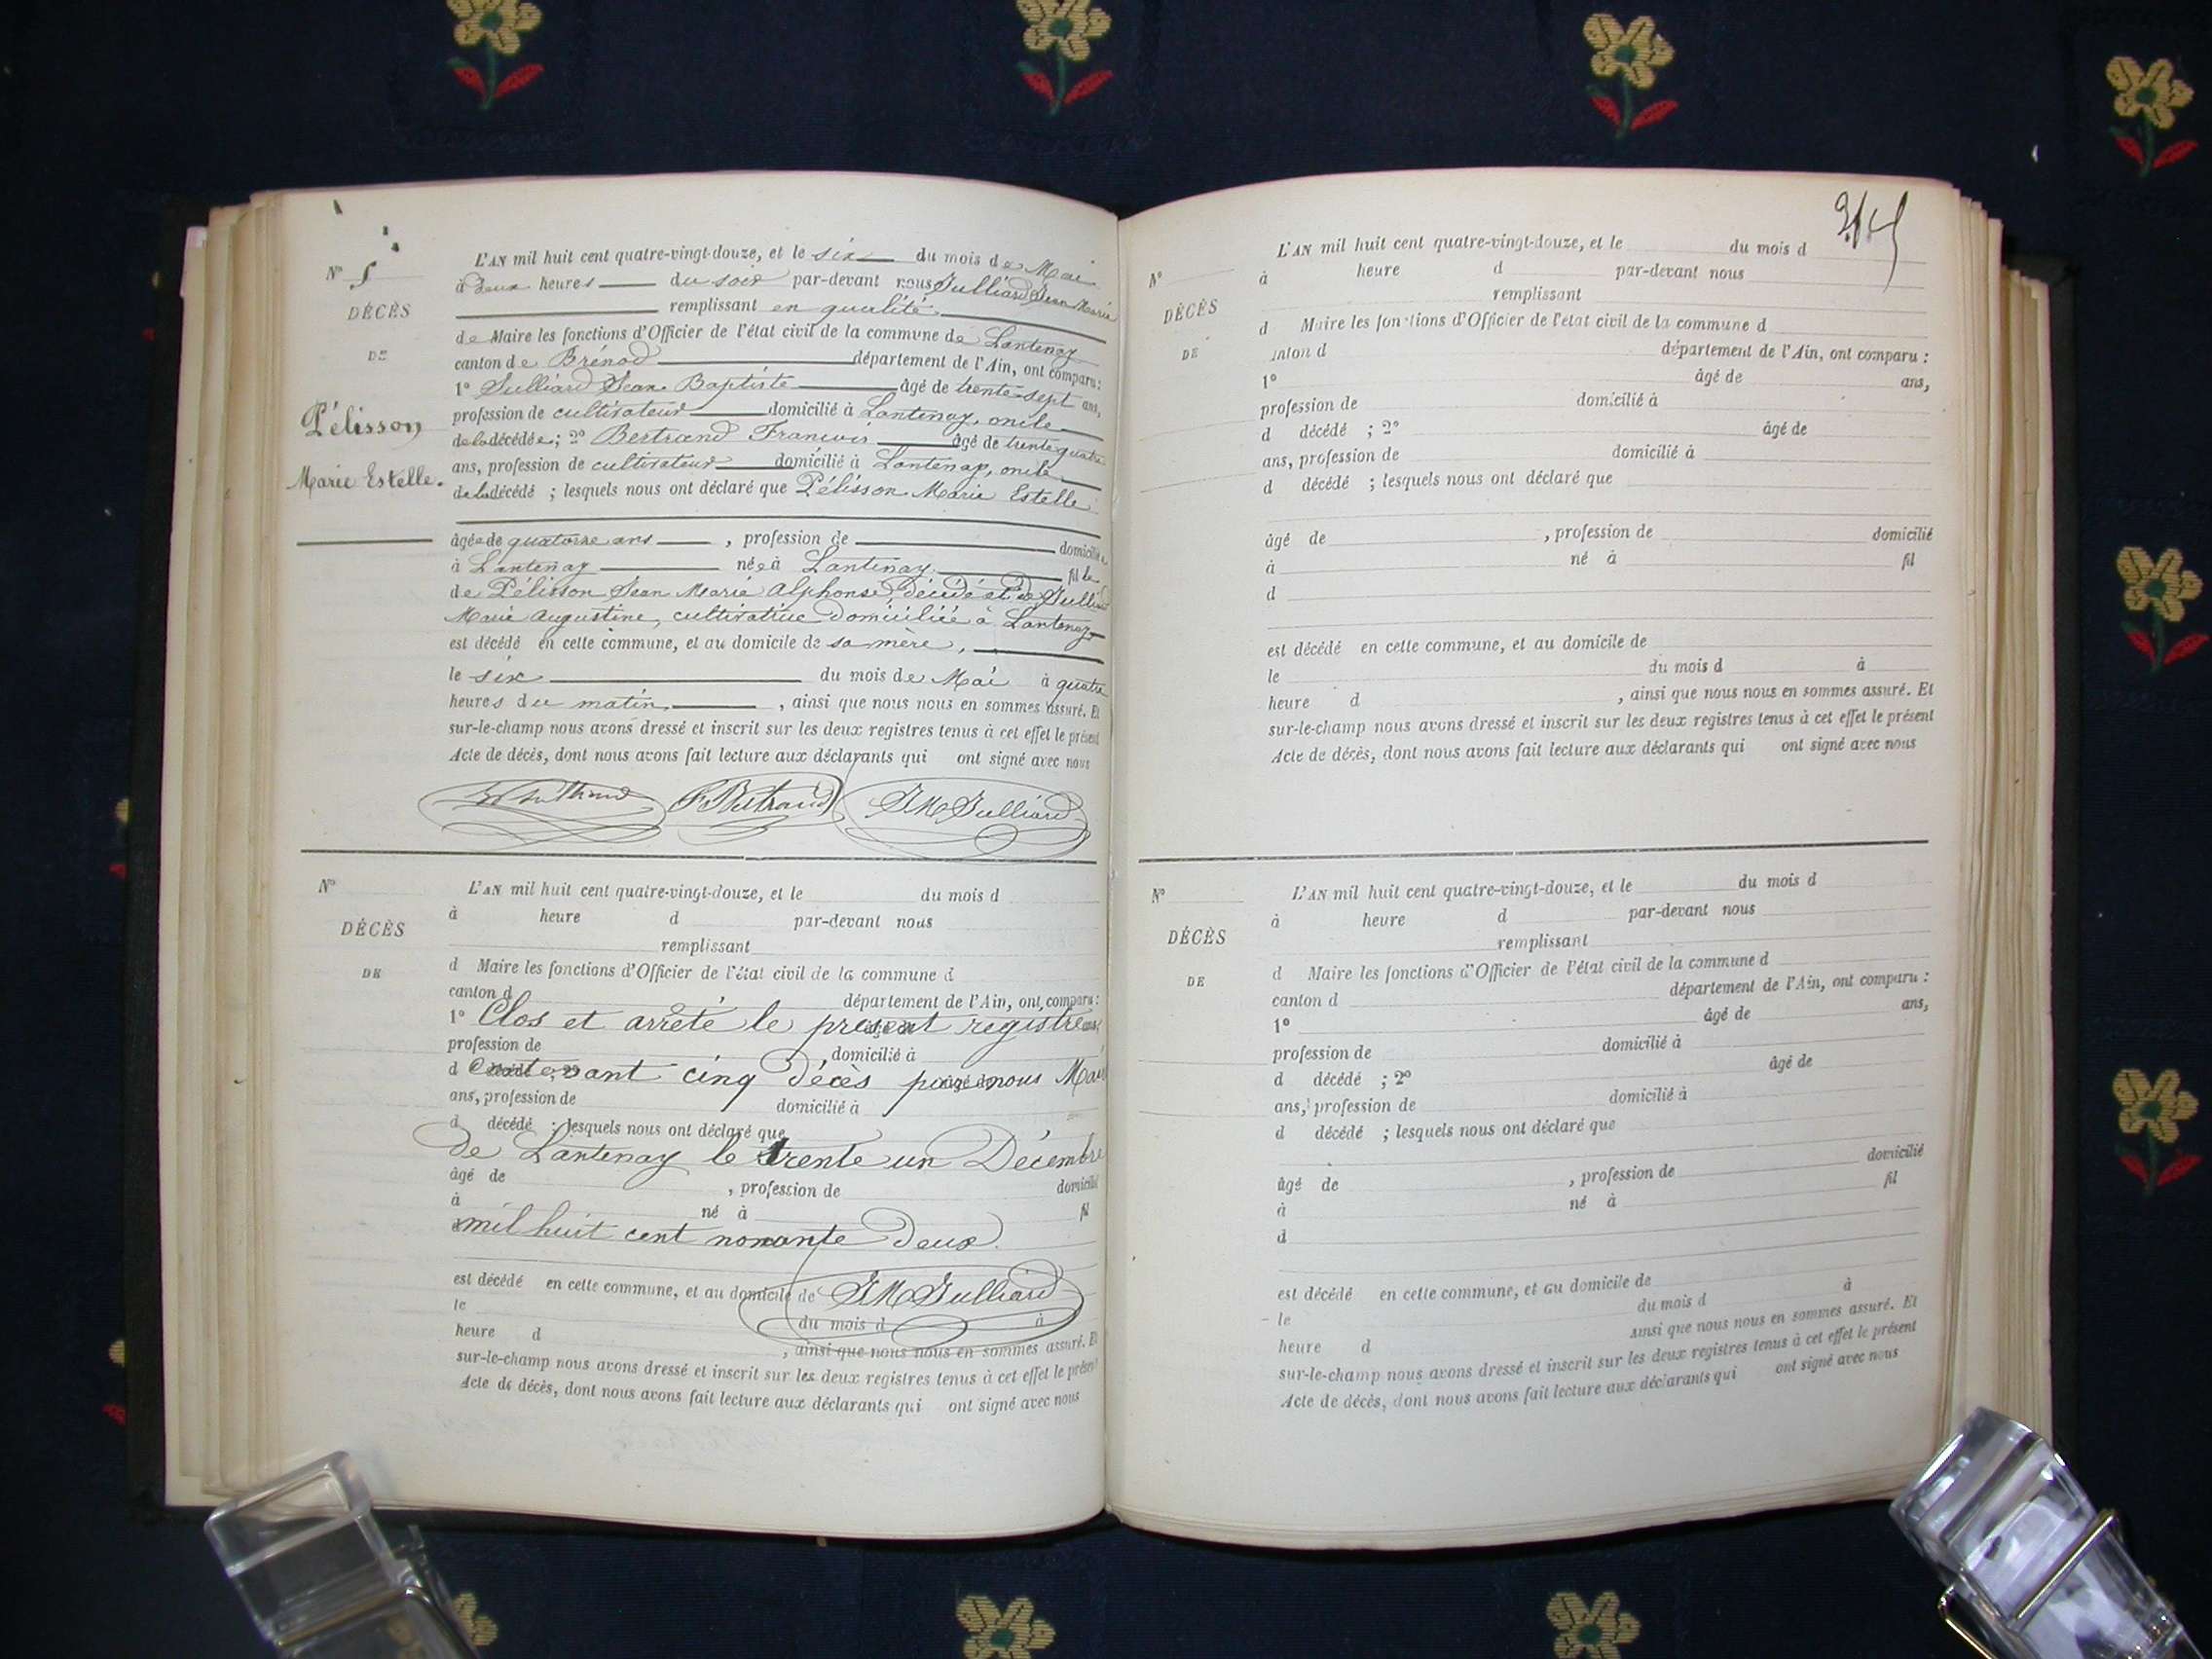 L'AN mil huit cent quatre-vingt-douze, et le six du mois de Mai
N° 5
à deux heures du soir par-devant nous Julliard Jean Marie
DÉCÈS
remplissant en qualité
de Maire les fonctions d'Officier de l'état civil de la commune de Lantenay
DE
canton de Brénod département de l'Ain, ont comparu :
1° Julliard Jean Baptiste âgé de trente-sept ans,
Pélisson
profession de cultivateur domicilié à Lantenay, oncle
de la décédée ; 2° Bertrand François âgé de trente quatre
ans, profession de cultivateur domicilié à Lantenay, oncle
Marie Estelle.
de la décédé ; lesquels nous ont déclaré que Pélisson Marie Estelle
âgée de quatorze ans , profession de domiciliée
à Lantenay née à Lantenay fille
de Pélisson Jean Marie Alphonse, décédé et de Julliard
Marie Augustine, cultivatrice domiciliée à Lantenay
est décédé en cette commune, et au domicile de sa mère,
le six du mois de Mai à quatre
heures du matin , ainsi que nous nous en sommes assuré. Et
sur-le-champ nous avons dressé et inscrit sur les deux registres tenus à cet effet le présent
Acte de décès, dont nous avons fait lecture aux déclarants qui ont signé avec nous
F. Bertrand JM Julliard
N°
L'AN mil huit cent quatre-vingt-douze, et le du mois d
à heure d par-devant nous
DÉCÈS
remplissant
DE
d Maire les fonctions d'Officier de l'état civil de la commune d
canton d département de l'Ain, ont comparu :
1° Clos et arrêté le présent registre
profession de domicilié à
d Contenant cinq décès par nous Maire
ans, profession de domicilié à
d décédé ; lesquels nous ont déclaré que
de Lantenay le trente un Décembre
âgé de , profession de domicilié
à né à fil
mil huit cent nonante Deux.
est décédé en cette commune, et au domicile de JM Julliard
le du mois d à
heure d , ainsi que nous nous en sommes assuré. Et
sur-le-champ nous avons dressé et inscrit sur les deux registres tenus à cet effet le présent
Acte de décès, dont nous avons fait lecture aux déclarants qui ont signé avec nous
L'AN mil huit cent quatre-vingt-douze, et le du mois d
N°
à heure d par-devant nous
DÉCÈS
remplissant
d Maire les fonctions d'Officier de l'état civil de la commune d
DE
anton d département de l'Ain, ont comparu :
1° âgé de ans,
profession de domicilié à
d décédé ; 2° âgé de
ans, profession de domicilié à
d décédé ; lesquels nous ont déclaré que
âgé de , profession de domicilié
à né à fil
d
est décédé en cette commune, et au domicile de
le du mois d à
heure d , ainsi que nous nous en sommes assuré. Et
sur-le-champ nous avons dressé et inscrit sur les deux registres tenus à cet effet le présent
Acte de décès, dont nous avons fait lecture aux déclarants qui ont signé avec nous
N°
L'AN mil huit cent quatre-vingt-douze, et le du mois d
à heure d par-devant nous
DÉCÈS
remplissant
DE
d Maire les fonctions d'Officier de l'état civil de la commune d
canton d département de l'Ain, ont comparu :
1° âgé de ans,
profession de domicilié à
d décédé ; 2° âgé de
ans, profession de domicilié à
d décédé ; lesquels nous ont déclaré que
âgé de , profession de domicilié
à né à fil
d
est décédé en cette commune, et au domicile de
le du mois d à
heure d ainsi que nous nous en sommes assuré. Et
sur-le-champ nous avons dressé et inscrit sur les deux registres tenus à cet effet le présent
Acte de décès, dont nous avons fait lecture aux déclarants qui ont signé avec nous